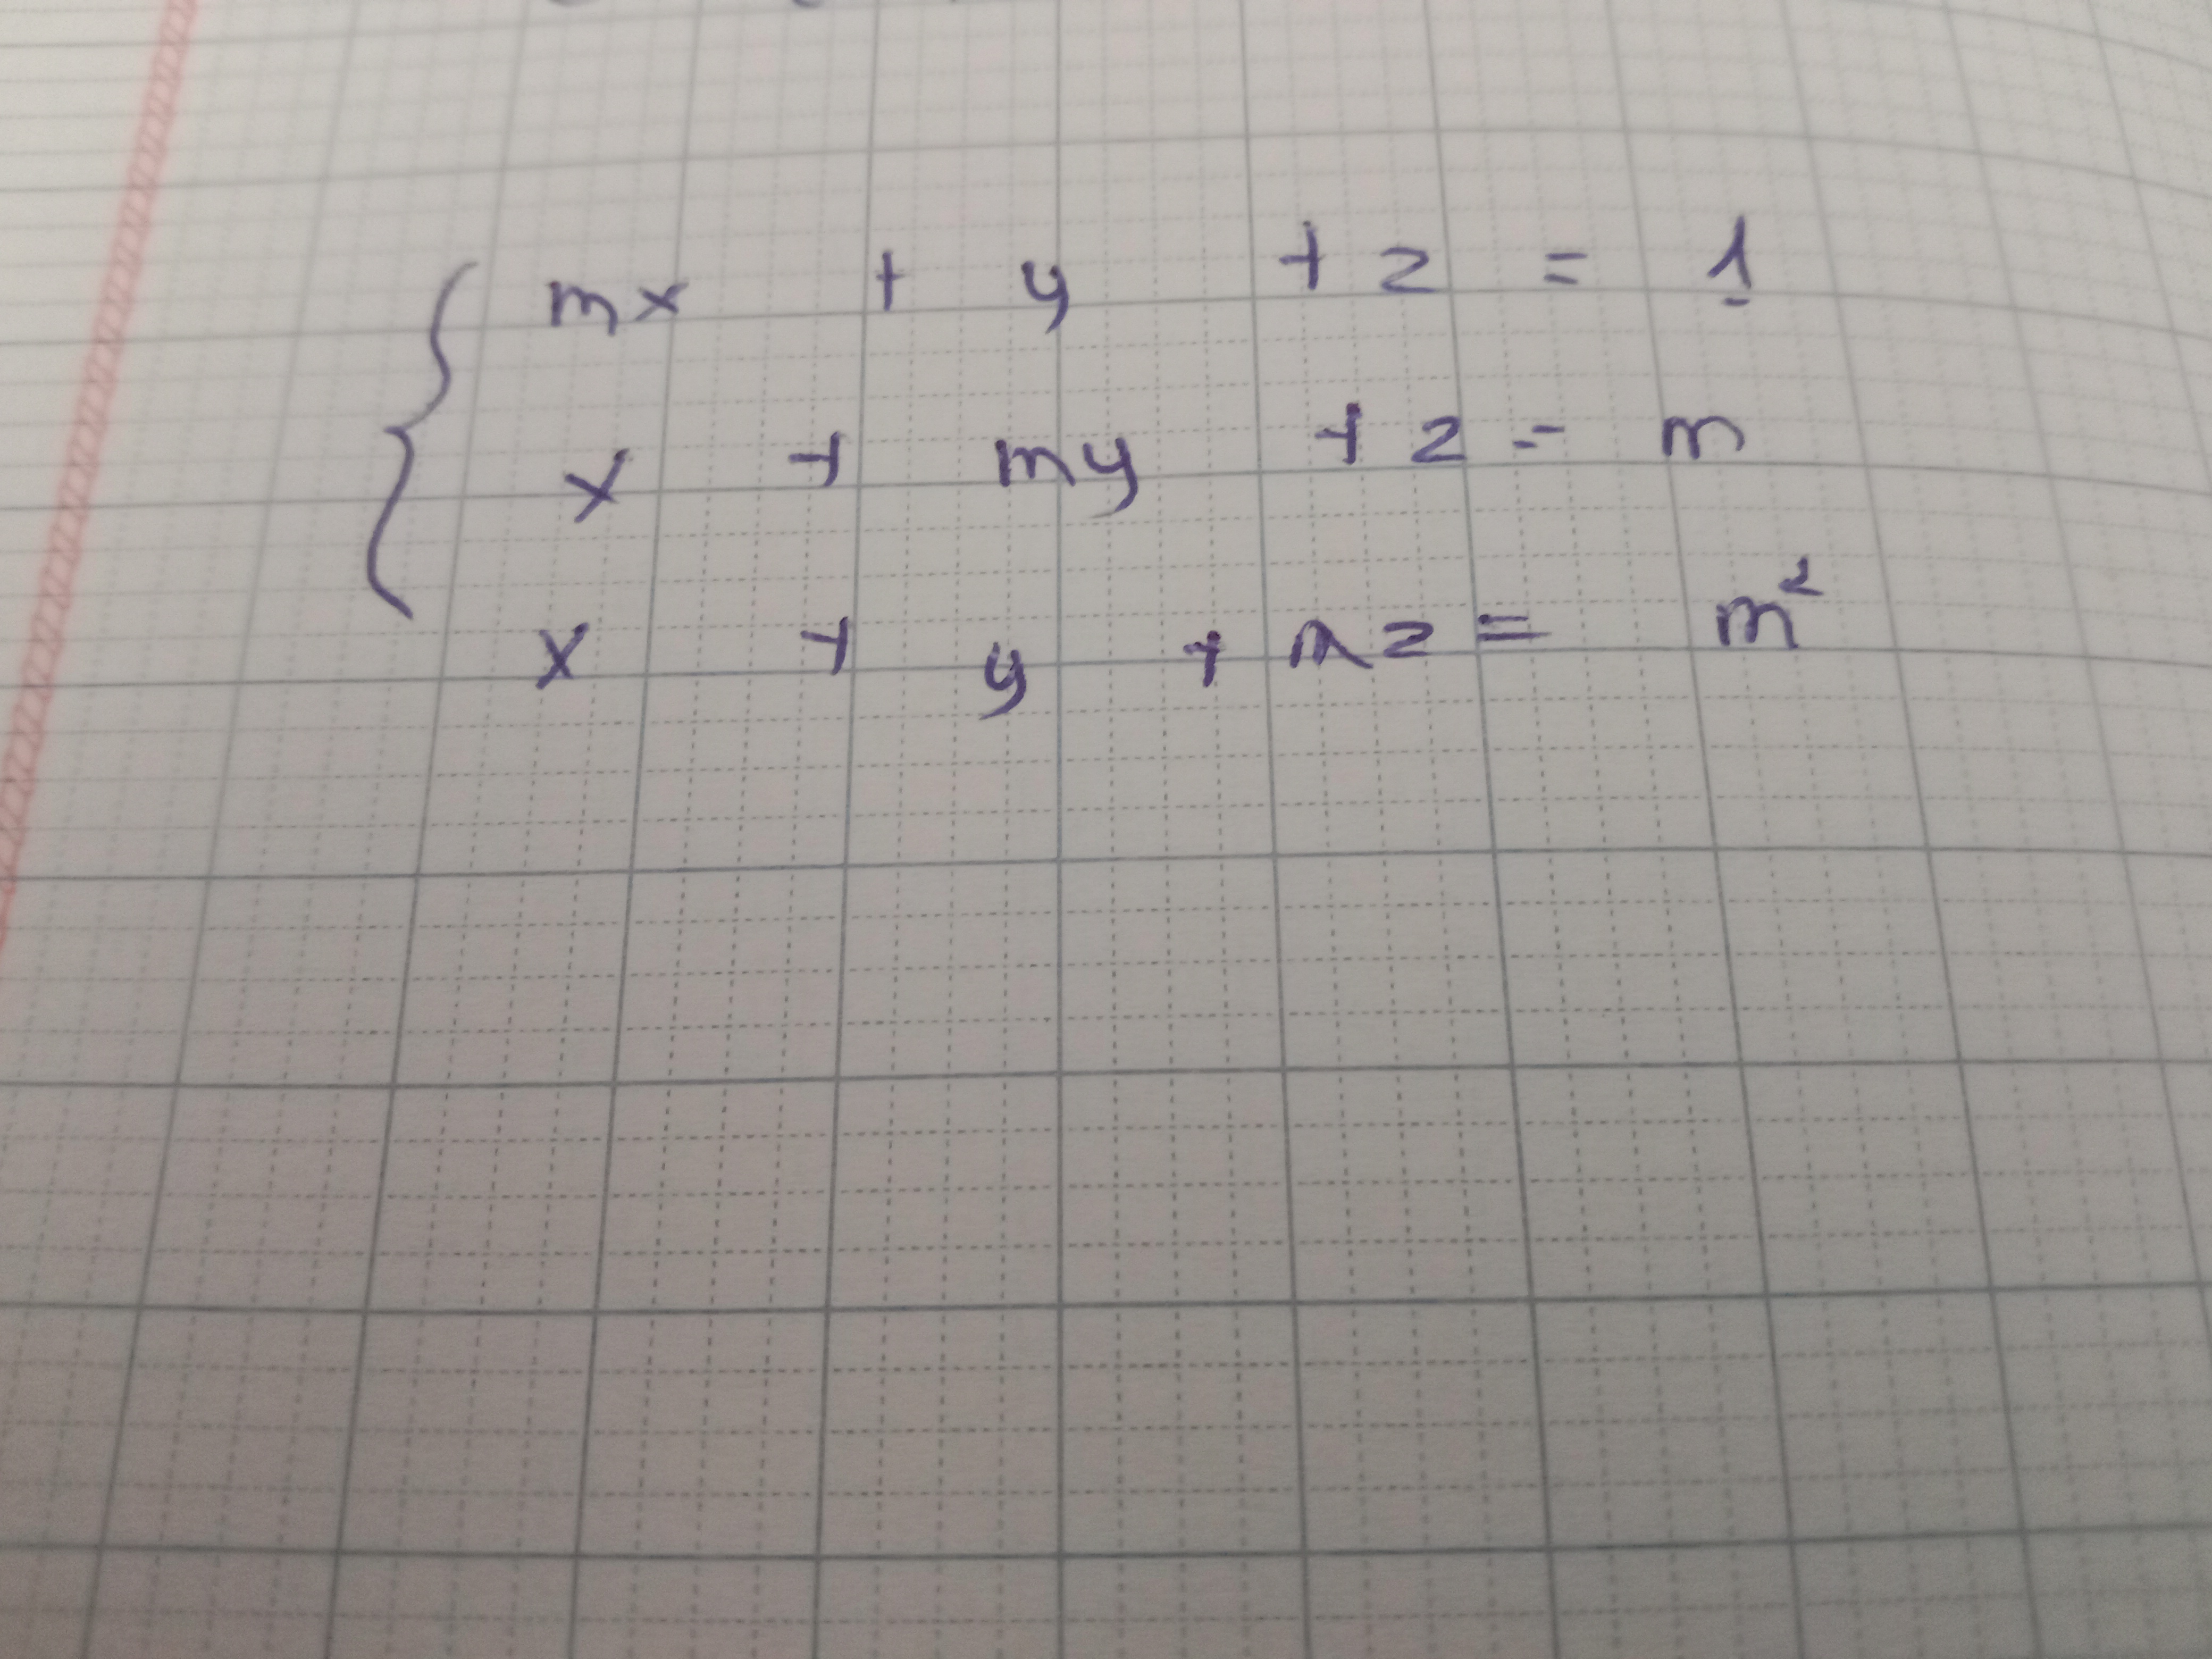 mx + y + z = 1
x + my + z = m
x + y + mz = m²